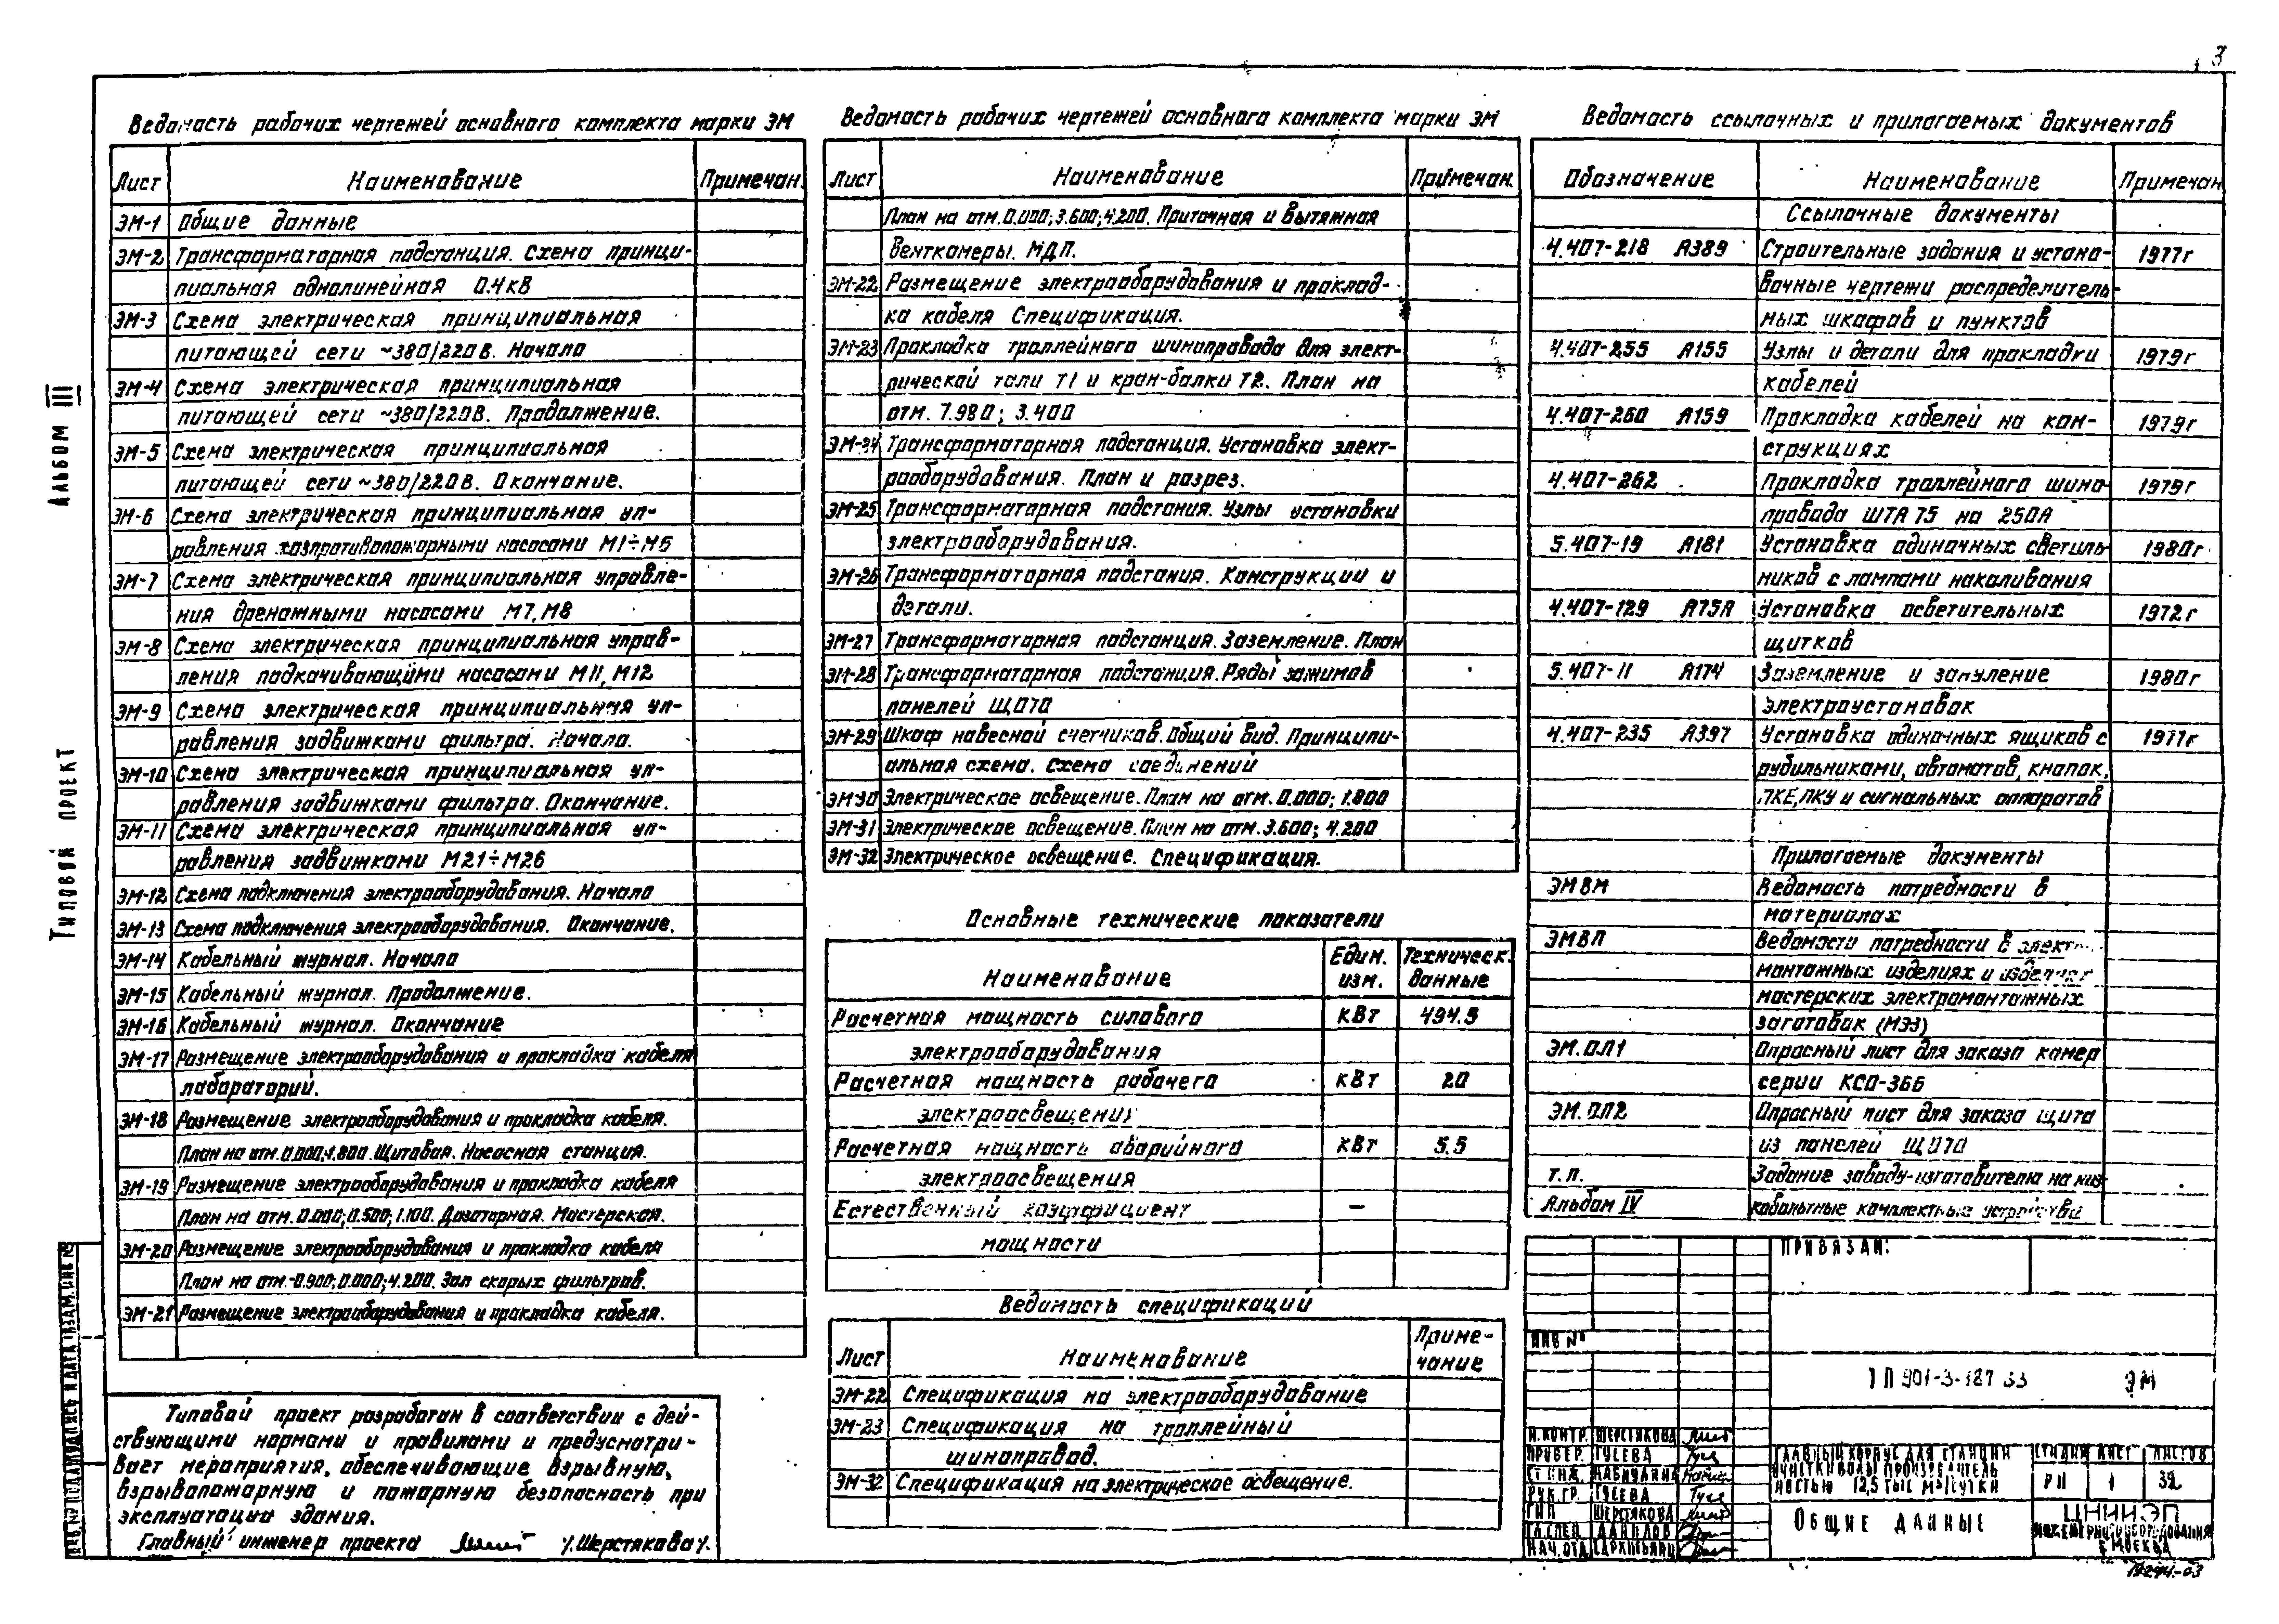 3
Альбом III
Типовой проект
Ведомость рабочих чертежей основного комплекта марки ЭМ
Лист Наименование Примечан.
ЭМ-1 Общие данные
ЭМ-2 Трансформаторная подстанция. Схема принци-
пиальная однолинейная 0.4кВ
ЭМ-3 Схема электрическая принципиальная
питающей сети ~380/220В. Начало
ЭМ-4 Схема электрическая принципиальная
питающей сети ~380/220В. Продолжение.
ЭМ-5 Схема электрическая принципиальная
питающей сети ~380/220В. Окончание.
ЭМ-6 Схема электрическая принципиальная уп-
равления хозпротивопожарными насосами М1÷М6
ЭМ-7 Схема электрическая принципиальная управле-
ния дренажными насосами М7, М8
ЭМ-8 Схема электрическая принципиальная управ-
ления подкачивающими насосами М11, М12
ЭМ-9 Схема электрическая принципиальная уп-
равления задвижками фильтра. Начало.
ЭМ-10 Схема электрическая принципиальная уп-
равления задвижками фильтра. Окончание.
ЭМ-11 Схема электрическая принципиальная уп-
равления задвижками М21÷М26
ЭМ-12 Схема подключения электрооборудования. Начало
ЭМ-13 Схема подключения электрооборудования. Окончание.
ЭМ-14 Кабельный журнал. Начало
ЭМ-15 Кабельный журнал. Продолжение.
ЭМ-16 Кабельный журнал. Окончание
ЭМ-17 Размещение электрооборудования и прокладка кабеля
лабораторий.
ЭМ-18 Размещение электрооборудования и прокладка кабеля.
План на отм. 0.000; 1.800. Щитовая. Насосная станция.
ЭМ-19 Размещение электрооборудования и прокладка кабеля
План на отм. 0.000; 0.500; 1.100. Дозаторная. Мастерская.
ЭМ-20 Размещение электрооборудования и прокладка кабеля
План на отм. -0.900; 0.000; 4.200. Зал скорых фильтров.
ЭМ-21 Размещение электрооборудования и прокладка кабеля.
Типовой проект разработан в соответствии с дей-
ствующими нормами и правилами и предусматри-
вает мероприятия, обеспечивающие взрывную,
взрывопожарную и пожарную безопасность при
эксплуатации здания.
Главный инженер проекта /Шерстякова/.
Ведомость рабочих чертежей основного комплекта марки ЭМ
Лист Наименование Примечан.
План на отм. 0.000; 3.600; 4.200. Приточная и вытяжная
венткамеры. МДП.
ЭМ-22 Размещение электрооборудования и проклад-
ка кабеля Спецификация.
ЭМ-23 Прокладка троллейного шинопровода для элект-
рической тали Т1 и кран-балки Т2. План на
отм. 7.980; 3.400
ЭМ-24 Трансформаторная подстанция. Установка элект-
рооборудования. План и разрез.
ЭМ-25 Трансформаторная подстания. Узлы установки
электрооборудования.
ЭМ-26 Трансформаторная подстания. Конструкции и
детали.
ЭМ-27 Трансформаторная подстанция. Заземление. План
ЭМ-28 Трансформаторная подстанция. Ряды зажимов
панелей ЩО70
ЭМ-29 Шкаф навесной счетчиков. Общий вид. Принципи-
альная схема. Схема соединений
ЭМ30 Электрическое освещение. План на отм. 0.000; 1.800
ЭМ-31 Электрическое освещение. План на отм. 3.600; 4.200
ЭМ-32 Электрическое освещение. Спецификация.
Основные технические показатели
Наименование Един. изм. Техническ. данные
Расчетная мощность силового кВт 494.5
электрооборудования
Расчетная мощность рабочего кВт 20
электроосвещения
Расчетная мощность аварийного кВт 5.5
электроосвещения
Естественный коэффициент —
мощности
Ведомость спецификаций
Лист Наименование Приме-
чание
ЭМ-22 Спецификация на электрооборудование
ЭМ-23 Спецификация на троллейный
шинопровод.
ЭМ-32 Спецификация на электрическое освещение.
Ведомость ссылочных и прилагаемых документов
Обозначение Наименование Примечан
Ссылочные документы
4.407-218 А389 Строительные задания и устано- 1977г
вочные чертежи распределитель-
ных шкафов и пунктов
4.407-255 А155 Узлы и детали для прокладки 1979г
кабелей
4.407-260 А159 Прокладка кабелей на кон- 1979г
струкциях
4.407-262 Прокладка троллейного шино- 1979г
провода ШТА 75 на 250А
5.407-19 А181 Установка одиночных светиль- 1980г
ников с лампами накаливания
4.407-129 А75А Установка осветительных 1972г
щитков
5.407-11 А174 Заземление и зануление 1980г
электроустановок
4.407-235 А397 Установка одиночных ящиков с 1977г
рубильниками, автоматов, кнопок,
ПКЕ, ПКУ и сигнальных аппаратов
Прилагаемые документы
ЭМВМ Ведомость потребности в
материалах
ЭМВП Ведомости потребности в электро
монтажных изделиях и изделиях
мастерских электромонтажных
заготовок (МЭЗ)
ЭМ.ОЛ1 Опросный лист для заказа камер
серии КСО-366
ЭМ.ОЛ2 Опросный лист для заказа щита
из панелей ЩО70
т.п. Задание заводу-изготовителю на низ-
Альбом IV ковольтные комплектные устройства
Привязан:
Инв №
ТП 901-3-187 83 ЭМ
Н.контр. Шерстякова
Провер. Гусева
Ст инж. Набиулина
Рук.гр. Гусева
ГИП Шерстякова
Гл.спец. Данилов
Нач.отд
Главный корпус для станции
очистки воды производитель
ностью 12,5 тыс м³/сутки
Стадия Лист Листов
РП 1 32
Общие данные
ЦНИИЭП
инженерного оборудования
г. Москва
Инв.№ подл. Подпись и дата Взам.инв.№
19244-03